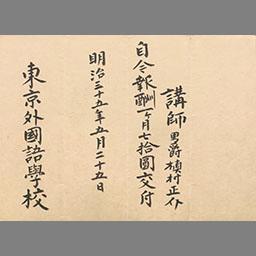 講師 男爵 槙村正介
自今報酬一ヶ月七拾圓交付
明治三十五年五月二十五日
東京外國語學校